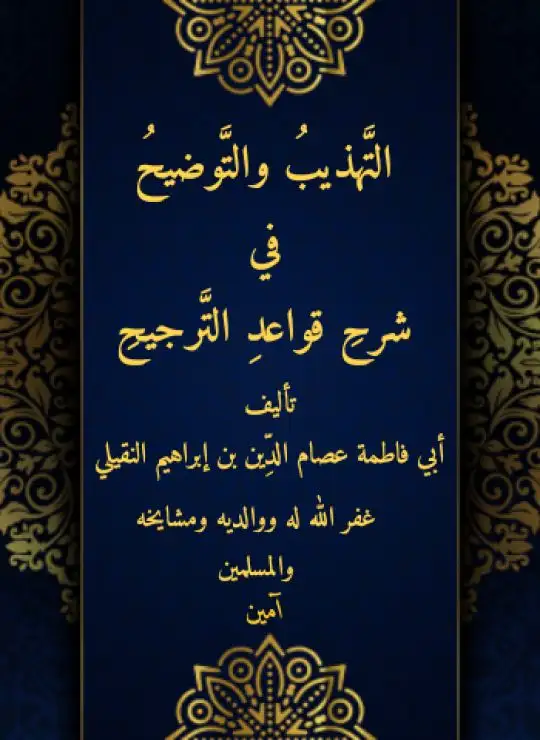 التَّهذيبُ والتَّوضيحُ
في
شرحِ قواعدِ التَّرجيحِ
تأليف
أبي فاطمة عصام الدِّين بن إبراهيم النقيلي
غفر الله له ووالديه ومشايخه
والمسلمين
آمين